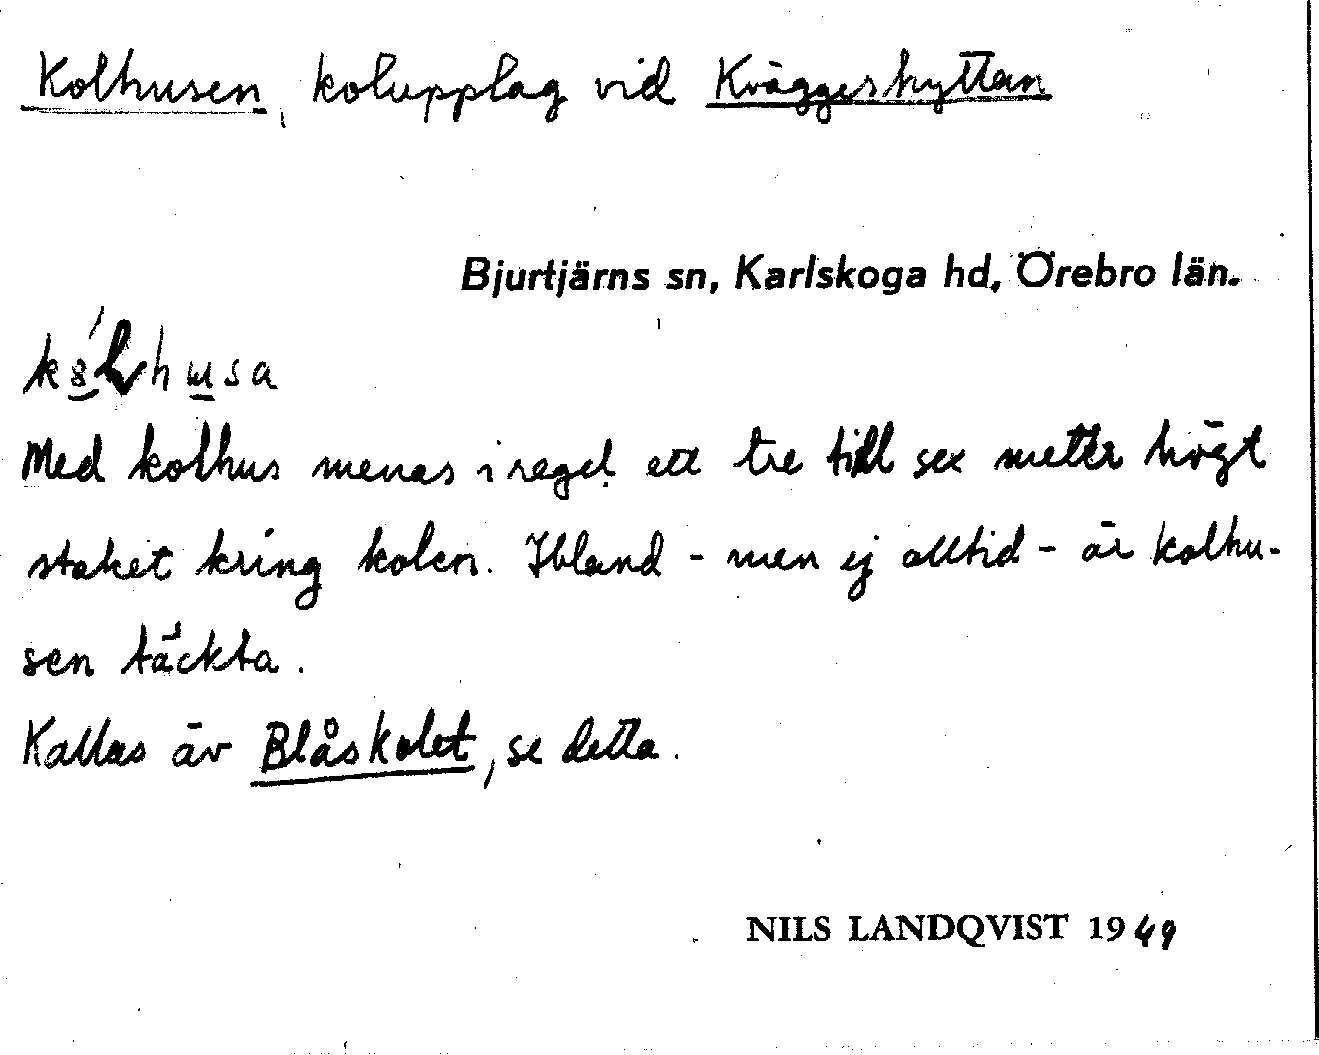 Kolhusen, kolupplag vid Kväggeshyttan
Bjurtjärns sn, Karlskoga hd, Örebro län.
Med kolhus menas i regel ett tre till sex meter högt
staket kring kolen. Ibland - men ej alltid - är kolhu-
sen täckta.
Kallas äv Blåskolet, se detta.
NILS LANDQVIST 1949